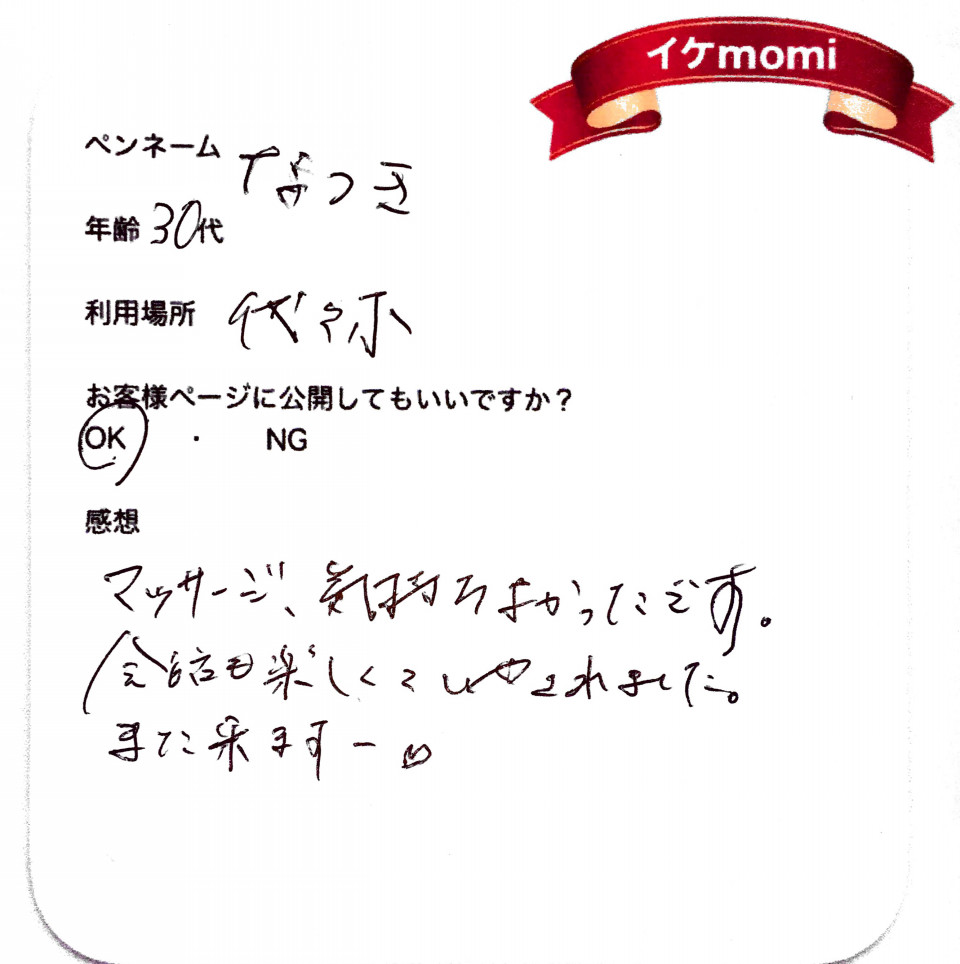 イケmomi
ペンネーム なつき
年齢 30代
利用場所 代々木
お客様ページに公開してもいいですか?
OK ・ NG
感想
マッサージ、気持ちよかったです。
会話も楽しくていやされました。
また来ますー